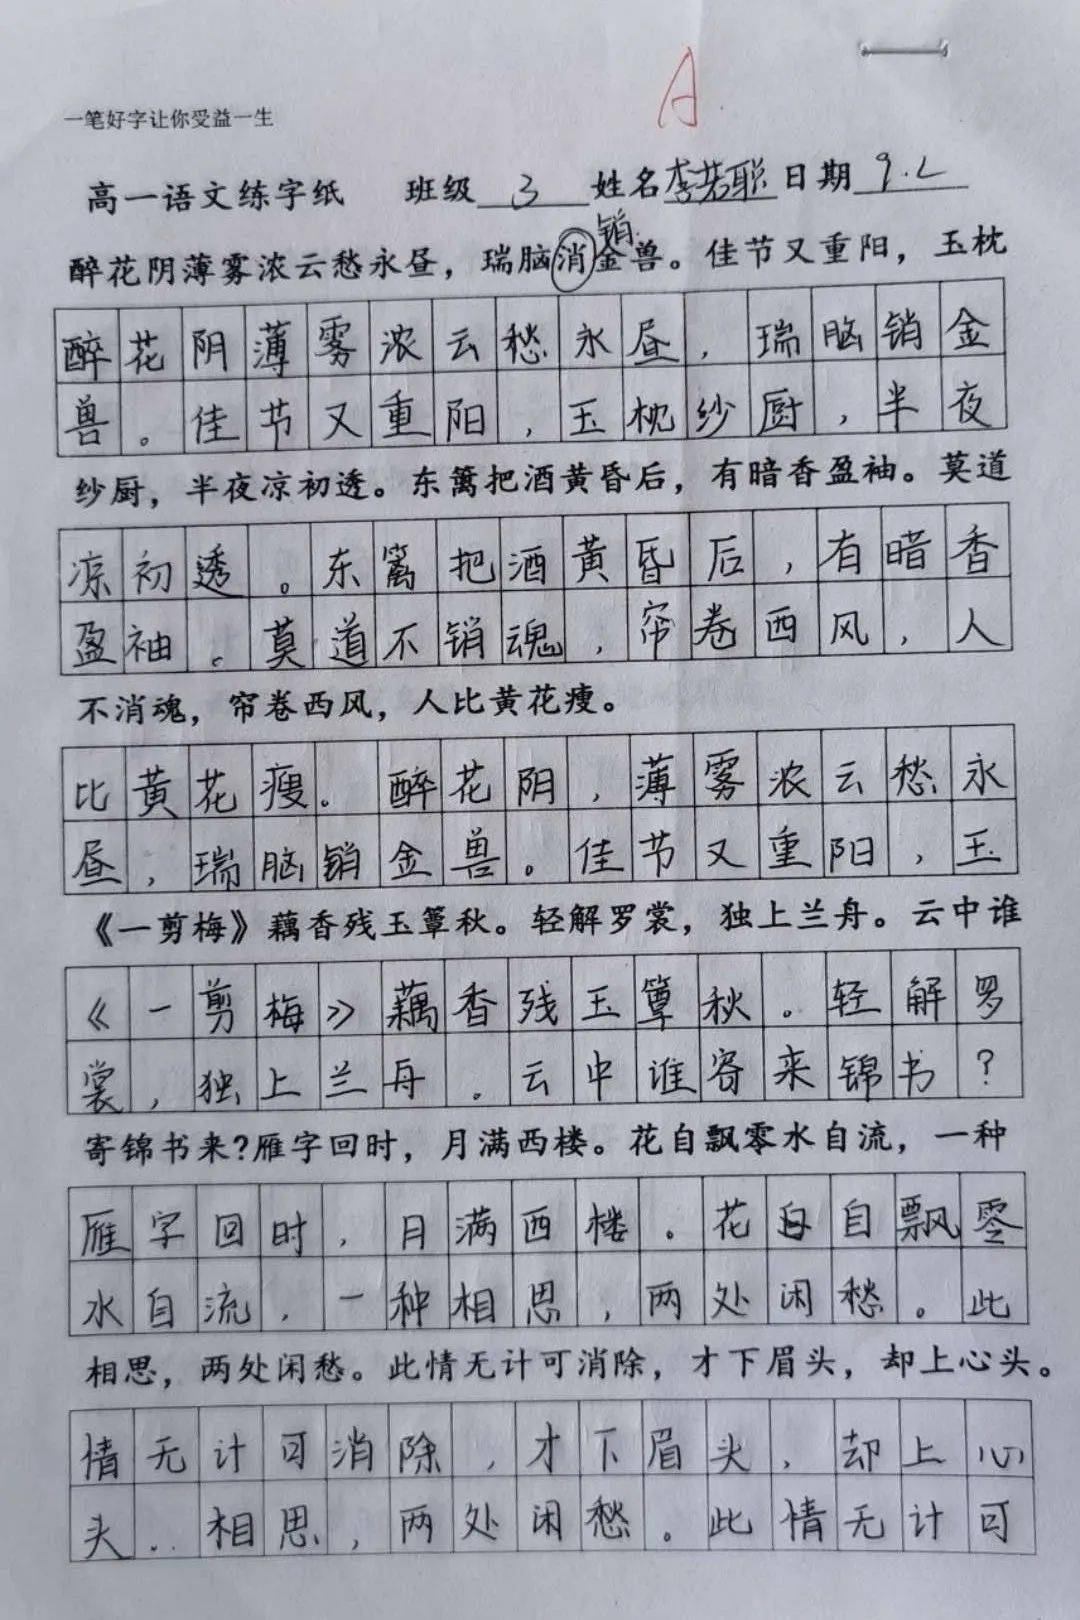 A.
一笔好字让你受益一生
高一语文练字纸 班级 3 姓名 李芸聪 日期 9.2
销
醉花阴薄雾浓云愁永昼，瑞脑消金兽。佳节又重阳，玉枕
醉花阴薄雾浓云愁永昼，瑞脑销金
兽。佳节又重阳，玉枕纱厨，半夜
纱厨，半夜凉初透。东篱把酒黄昏后，有暗香盈袖。莫道
凉初透。东篱把酒黄昏后，有暗香
盈袖。莫道不销魂，帘卷西风，人
不消魂，帘卷西风，人比黄花瘦。
比黄花瘦。醉花阴，薄雾浓云愁永
昼，瑞脑销金兽。佳节又重阳，玉
《一剪梅》藕香残玉簟秋。轻解罗裳，独上兰舟。云中谁
《一剪梅》藕香残玉簟秋。轻解罗
裳，独上兰舟。云中谁寄来锦书?
寄锦书来?雁字回时，月满西楼。花自飘零水自流，一种
雁字回时，月满西楼。花自自飘零
水自流，一种相思，两处闲愁。此
相思，两处闲愁。此情无计可消除，才下眉头，却上心头。
情无计可消除，才下眉头，却上心
头..相思，两处闲愁。此情无计可